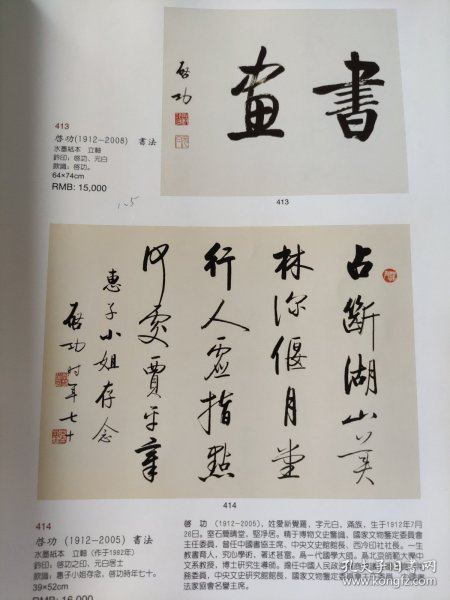 書畫
啓功
413
413
啓功(1912-2008) 書法
水墨紙本 立軸
鈐印：啓功、元白
款識：啓功。
64×74cm
RMB: 15,000
占斷湖山美
林深偃月堂
行人虛指點
何處賈平章
惠子小姐存念
啓功時年七十
414
414
啓功 (1912-2005) 書法
水墨紙本 立軸（作于1982年）
鈐印：啓功之印、元白居士
款識：惠子小姐存念，啓功時年七十。
39×52cm
RMB: 16,000
啓 功 (1912-2005)，姓愛新覺羅，字元白，滿族，生于1912年7月
26日。室石簡晴堂，堅淨居。精于博物文史鑒識，國家文物鑒定委員會
主任委員，曾任中國書協主席、中央文史館館長、西冷印社社長。一生
教書育人，究心學術，著述甚富。爲一代國學大師。爲北京師範大學中
文系教授，博士研究生導師。擔任中國人民政
務委員，中央文史研究館館長，國家文物鑒定
法家協會名譽主席。
孔夫子旧书网